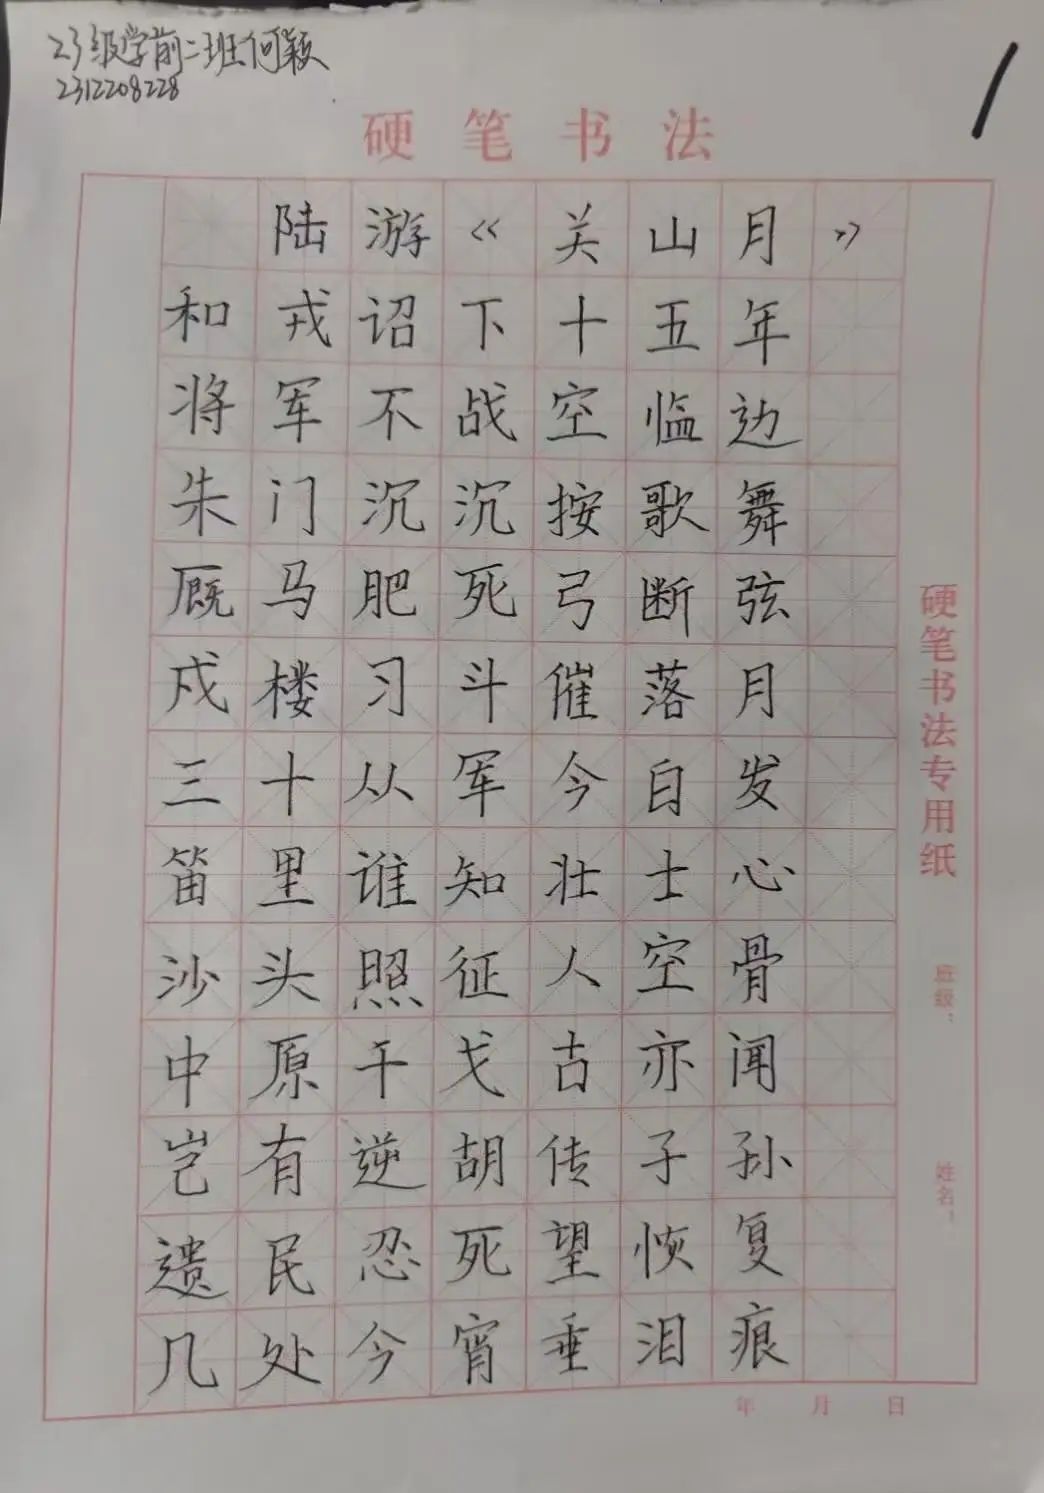 23级学前二班何颖
2312208228
硬笔书法
陆游《关山月》
和戎诏下十五年
将军不战空临边
朱门沉沉按歌舞
厩马肥死弓断弦
戍楼习斗催落月
三十从军今白发
笛里谁知壮士心
沙头照征人空骨
中原干戈古亦闻
岂有逆胡传子孙
遗民忍死望恢复
几处今宵垂泪痕
硬笔书法专用纸
班级：
姓名：
年 月 日